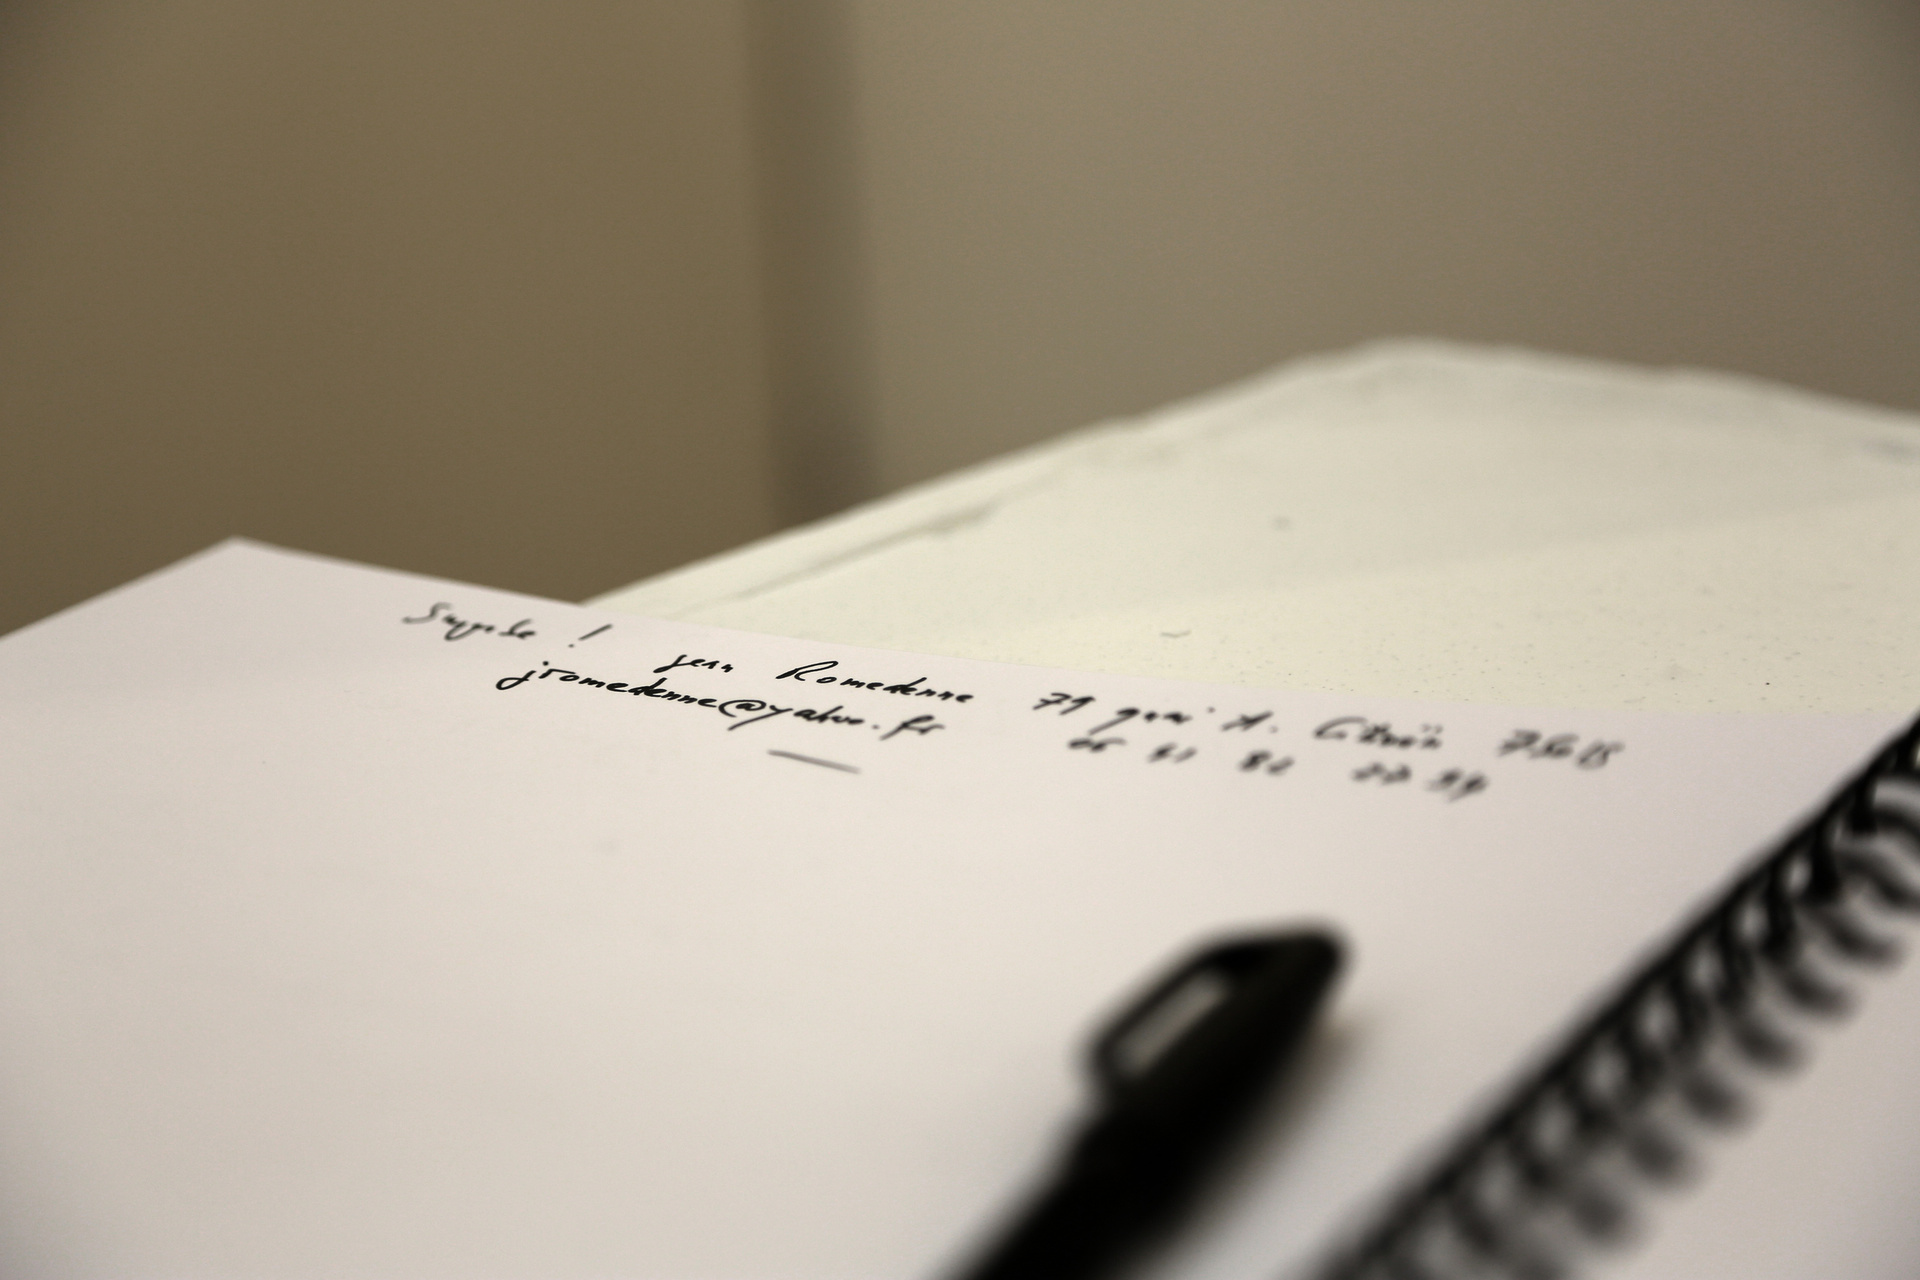 Superbe ! Jean Romedenne 79 quai A. Citroën 75015
jromedenne@yahoo.fr 06